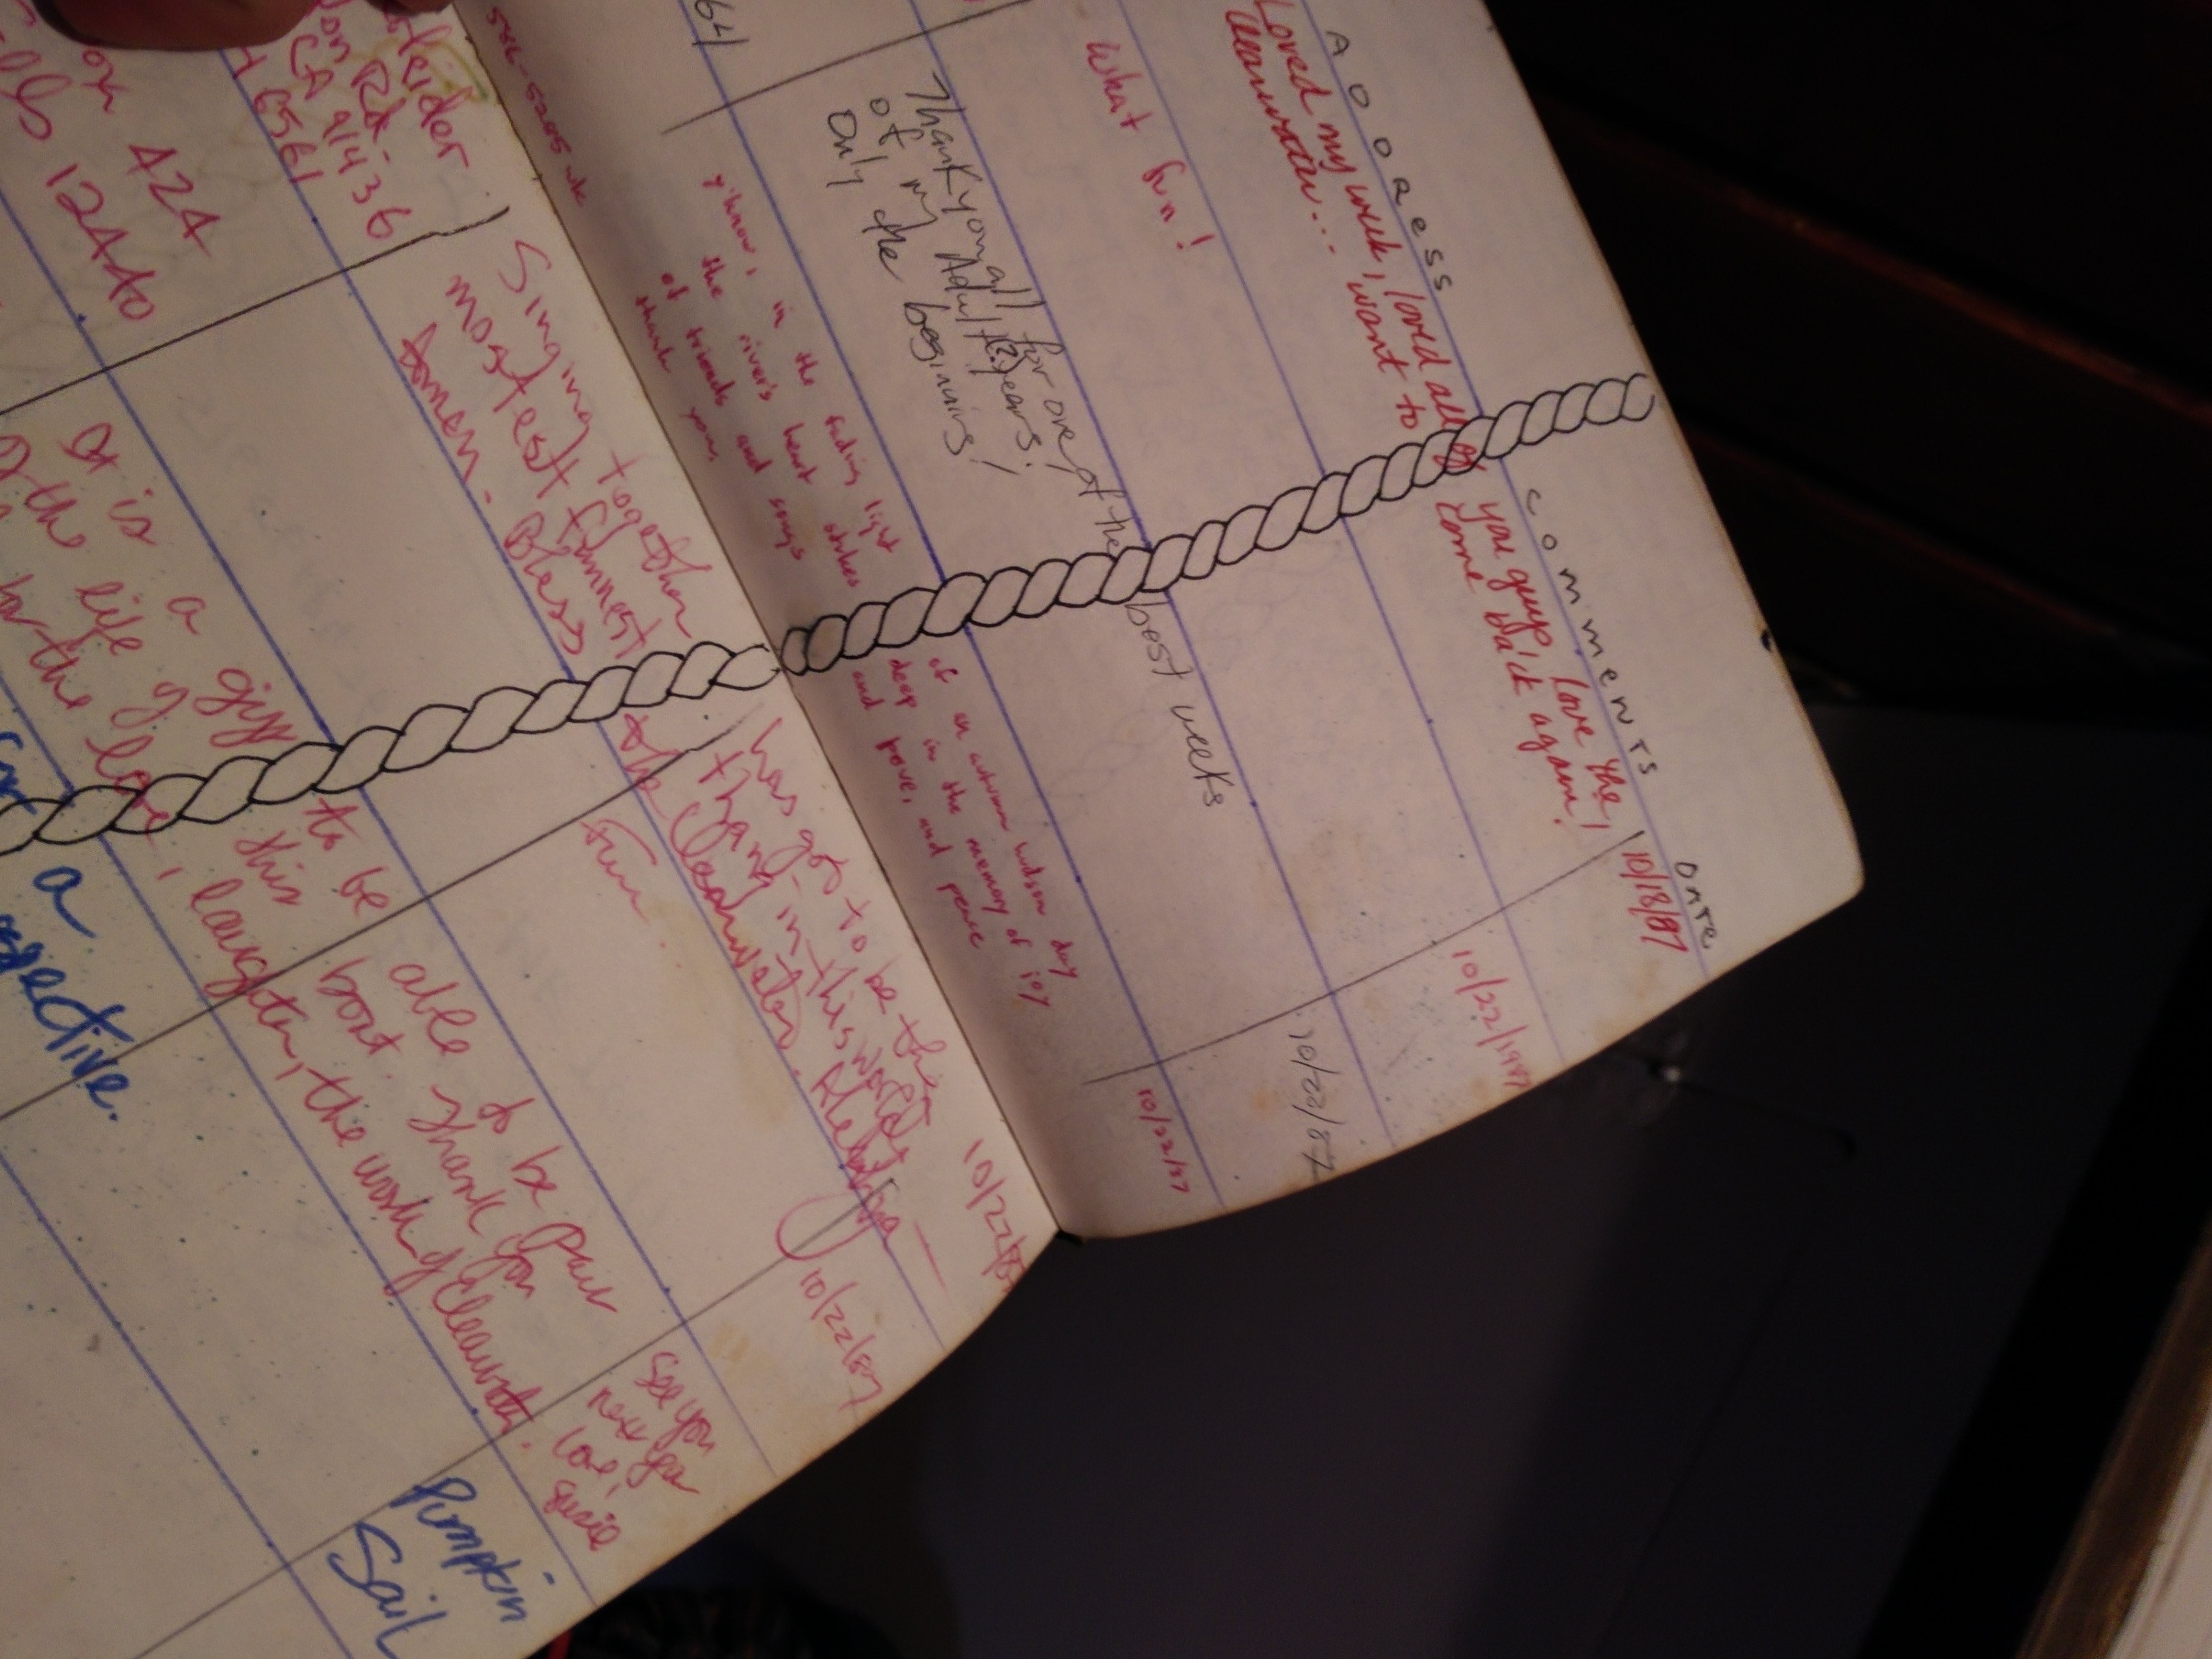 ADDRESS COMMENTS DATE
Loved my week, loved all of you guys, love the 10/18/87
Clearwater... want to come back again!
What fun! 10/22/1987
Thank you all for one of the best weeks 10/22/87
of my Adult(?) years!
Only the beginning!
y'know, in the fading light of an autumn hudson day 10/22/87
the river's heart strikes deep in the memory of joy
of friends and songs and love, and peace
thank you.
586-5205 wk
64
Singing together has got to be the 10/22/87
mostest funnest thang in this world
the Clearwater. 10/22/87
Bless
fun.
Rd.
CA 91436
6561
It is a gift to be able to be part See you
of the life of this boat Thank you next year
for the love, laughter, the work of Clearwater. Love,
Susie
424
12440
a
Pumpkin
Sail